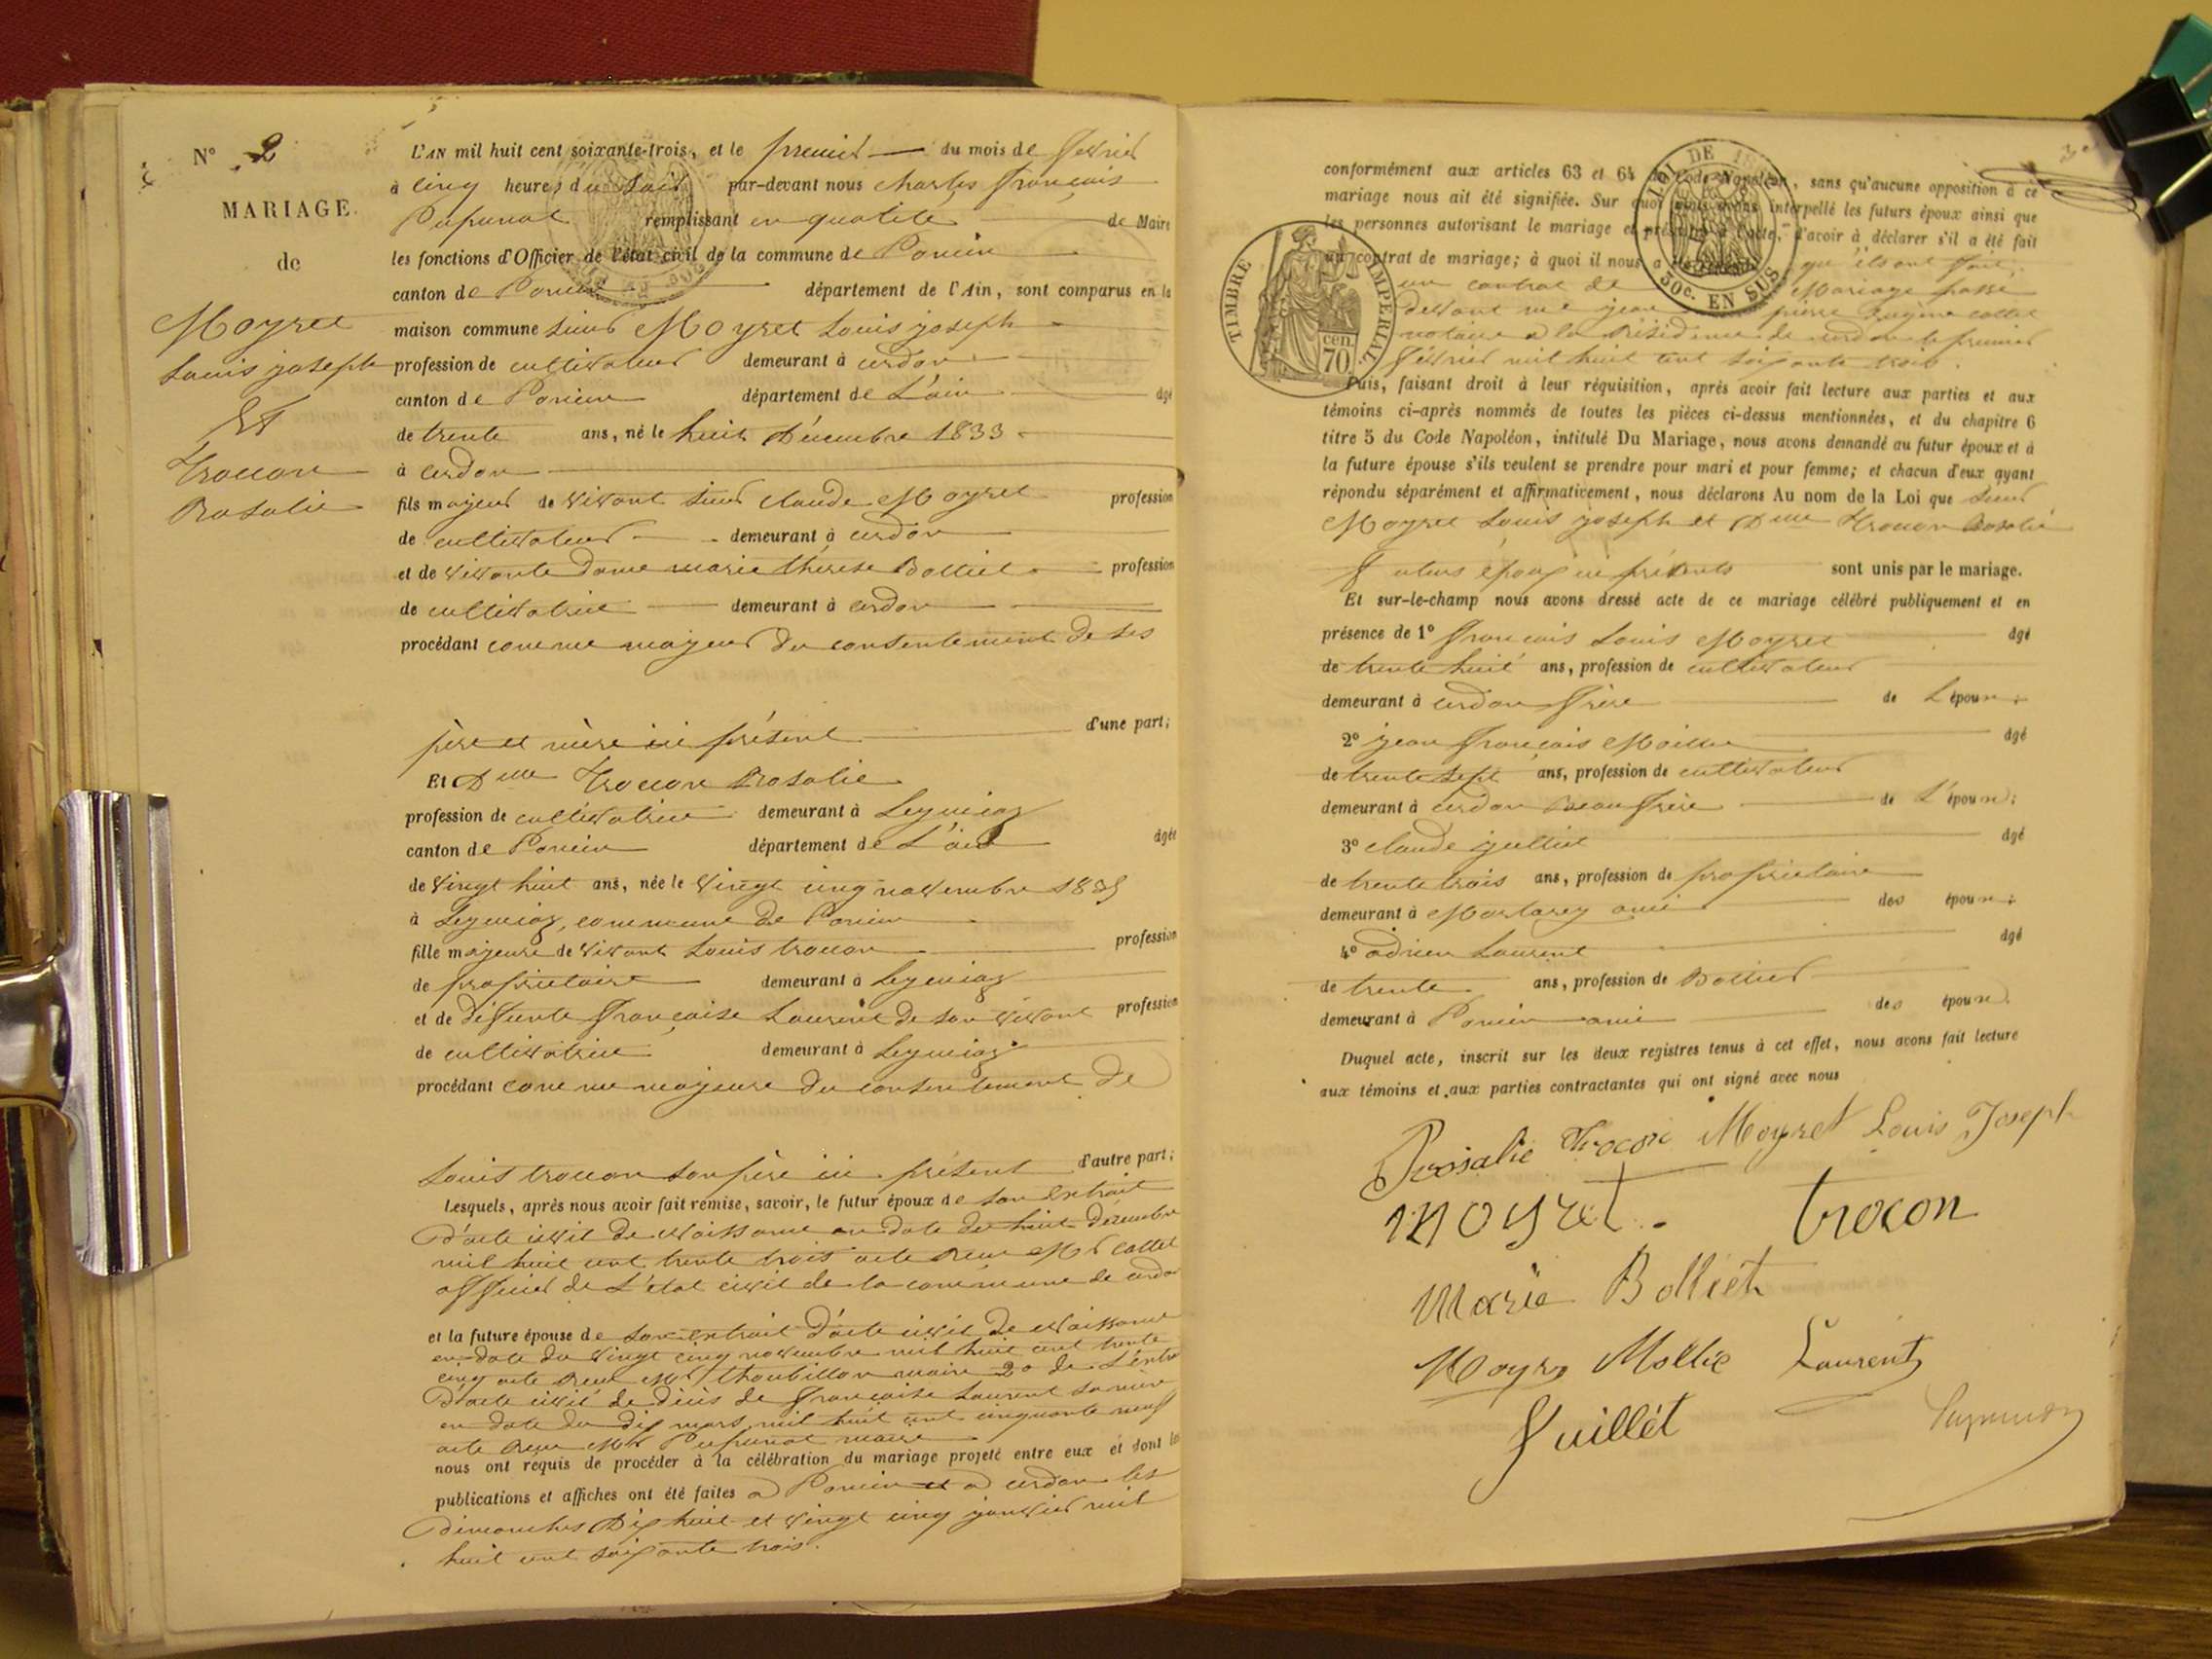 N° 2
MARIAGE
de
Moyret
Louis joseph
Et
Trocon
Rosalie
L'AN mil huit cent soixante-trois, et le premier du mois de fevrier
à cinq heures du soir par-devant nous Charles françois
remplissant en qualité de Maire
les fonctions d'Officier de l'état civil de la commune de Poncin
canton de Poncin département de l'Ain, sont comparus en la
maison commune sieur Moyret Louis joseph
profession de cultivateur demeurant à cerdon
canton de Poncin département de L'ain âgé
de trente ans, né le huit Décembre 1833
à cerdon
fils majeur de vivant sieur claude Moyret profession
de cultivateur demeurant à cerdon
et de vivante dame marie thérèse Bolliet profession
de cultivatrice demeurant à cerdon
procédant comme majeur du consentement de ses
père et mère ici présent d'une part;
Et Dlle Trocon Rosalie
profession de cultivatrice demeurant à Leymiaz
canton de Poncin département de L'ain âgée
de vingt huit ans, née le vingt cinq novembre 1835
à Leymiaz, commune de Poncin
fille majeure de vivant Louis trocon profession
de proprietaire demeurant à Leymiaz
et de defunte françoise Laurent de son vivant profession
de cultivatrice demeurant à Leymiaz
procédant comme majeure du consentement de
Louis trocon son père ici présent d'autre part;
Lesquels, après nous avoir fait remise, savoir, le futur époux de son Extrait
d'acte civil de Naissance en date du huit décembre
mil huit cent trente trois acte reçu Mr cottet
officier de L'état civil de la commune de cerdon
et la future épouse de son extrait d'acte civil de Naissance
en date du vingt cinq novembre mil huit cent trente
cinq acte reçu Mr thoubillon maire 2° de L'extrait
d'acte civil de décès de françoise Laurent sa mère
en date du dix mars mil huit cent cinquante neuf
acte reçu Mr maire
nous ont requis de procéder à la célébration du mariage projeté entre eux et dont les
publications et affiches ont été faites a Poncin et a cerdon les
dimanches Dix huit et vingt cinq janvier mil
huit cent soixante trois.
conformément aux articles 63 et 64 du Code Napoléon, sans qu'aucune opposition à ce
mariage nous ait été signifiée. Sur quoi nous avons interpellé les futurs époux ainsi que
les personnes autorisant le mariage et présentes à l'acte, d'avoir à déclarer s'il a été fait
un contrat de mariage; à quoi il nous a été répondu qu'ils ont fait
un contrat de Mariage passé
devant me jean pierre Eugène cottet
notaire a la Résidence de cerdon le premier
février mil huit cent soixante trois.
Puis, faisant droit à leur réquisition, après avoir fait lecture aux parties et aux
témoins ci-après nommés de toutes les pièces ci-dessus mentionnées, et du chapitre 6
titre 5 du Code Napoléon, intitulé Du Mariage, nous avons demandé au futur époux et à
la future épouse s'ils veulent se prendre pour mari et pour femme; et chacun d'eux ayant
répondu séparément et affirmativement, nous déclarons Au nom de la Loi que sieur
Moyret Louis joseph et Dlle Trocon Rosalie
futurs époux ici présents sont unis par le mariage.
Et sur-le-champ nous avons dressé acte de ce mariage célébré publiquement et en
présence de 1° françois Louis Moyret âgé
de trente huit ans, profession de cultivateur
demeurant à cerdon frère de L'époux;
2° jean françois Mollie âgé
de trente sept ans, profession de cultivateur
demeurant à cerdon Beau frère de L'époux;
3° claude julliet âgé
de trente trois ans, profession de proprietaire
demeurant à Mortarey ami des époux;
4° adrien Laurent âgé
de trente ans, profession de Bottier
demeurant à Poncin ami des époux.
Duquel acte, inscrit sur les deux registres tenus à cet effet, nous avons fait lecture
aux témoins et aux parties contractantes qui ont signé avec nous
Rosalie Trocon Moyret Louis Joseph
moyret. trocon
Marie Bolliet
Moyre Mollie Laurent
Juillét
TIMBRE IMPÉRIAL
70 cen.
LOI DE 18
50c. EN SUS